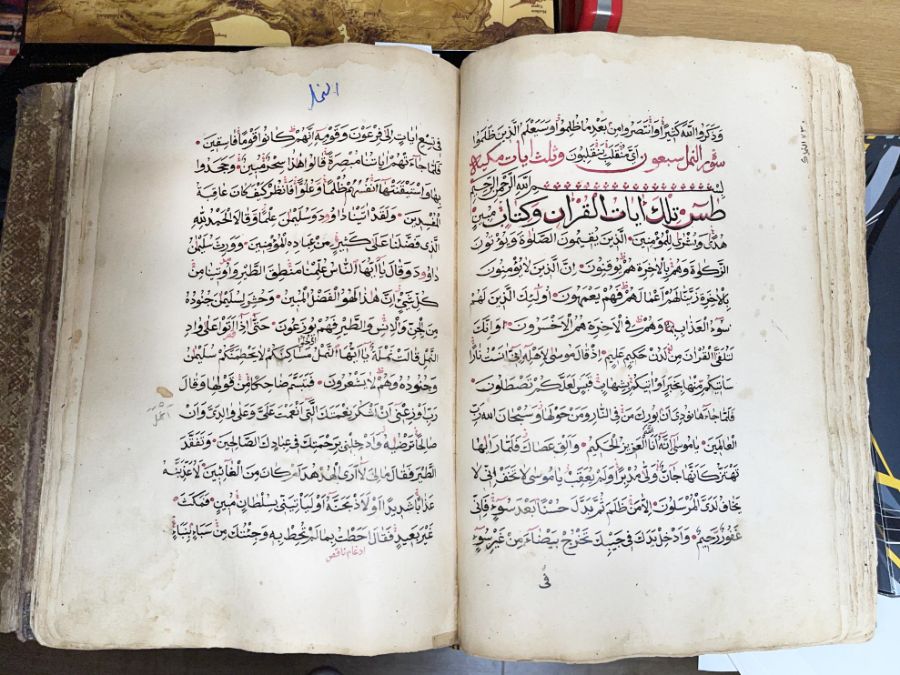 وذكروا الله كثيرا وانتصروا من بعد ما ظلموا وسيعلم الذين ظلموا
سورة النمل سبعون اى منقلب ينقلبون وثلث ايات مكية
بسم الله الرحمن الرحيم
طس تلك ايات القران وكتاب مبين
هدى وبشرى للمؤمنين الذين يقيمون الصلوة ويؤتون
الزكوة وهم بالاخرة هم يوقنون ان الذين لا يؤمنون
بالاخرة زينا لهم اعمالهم فهم يعمهون اولئك الذين لهم
سوء العذاب وهم في الاخرة هم الاخسرون وانك
لتلقى القران من لدن حكيم عليم اذ قال موسى لاهله انى انست نارا
ساتيكم منها بخبر او اتيكم بشهاب قبس لعلكم تصطلون
فلما جاءها نودى ان بورك من في النار ومن حولها وسبحان الله رب
العالمين ياموسى انه انا الله العزيز الحكيم والق عصاك فلما راها
تهتز كانها جان ولى مدبرا ولم يعقب ياموسى لا تخف انى لا
يخاف لدى المرسلون الا من ظلم ثم بدل حسنا بعد سوء فانى
غفور رحيم وادخل يدك في جيبك تخرج بيضاء من غير سوء
فى
النمل
في تسع ايات الى فرعون وقومه انهم كانوا قوما فاسقين
فلما جاءتهم اياتنا مبصرة قالوا هذا سحر مبين وجحدوا
بها واستيقنتها انفسهم ظلما وعلوا فانظر كيف كان عاقبة
المفسدين ولقد اتينا داود وسليمن علما وقالا الحمد لله
الذى فضلنا على كثير من عباده المؤمنين وورث سليمن
داود وقال ياايها الناس علمنا منطق الطير واوتينا من
كل شئ ان هذا لهو الفضل المبين وحشر لسليمن جنوده
من الجن والانس والطير فهم يوزعون حتى اذا اتوا على واد
النمل قالت نملة ياايها النمل ادخلوا مساكنكم لا يحطمنكم سليمن
وجنوده وهم لا يشعرون فتبسم ضاحكا من قولها وقال
رب اوزعنى ان اشكر نعمتك التى انعمت على وعلى والدى وان
اعمل
صالحا ترضيه وادخلنى برحمتك في عبادك الصالحين وتفقد
الطير فقال مالى لا ارى الهدهد ام كان من الغائبين لاعذبنه
عذابا شديدا او لاذبحنه او لياتينى بسلطان مبين فمكث
غير بعيد فقال احطت بما لم تحط به وجئتك من سباء بنباء
ادغام ناقص